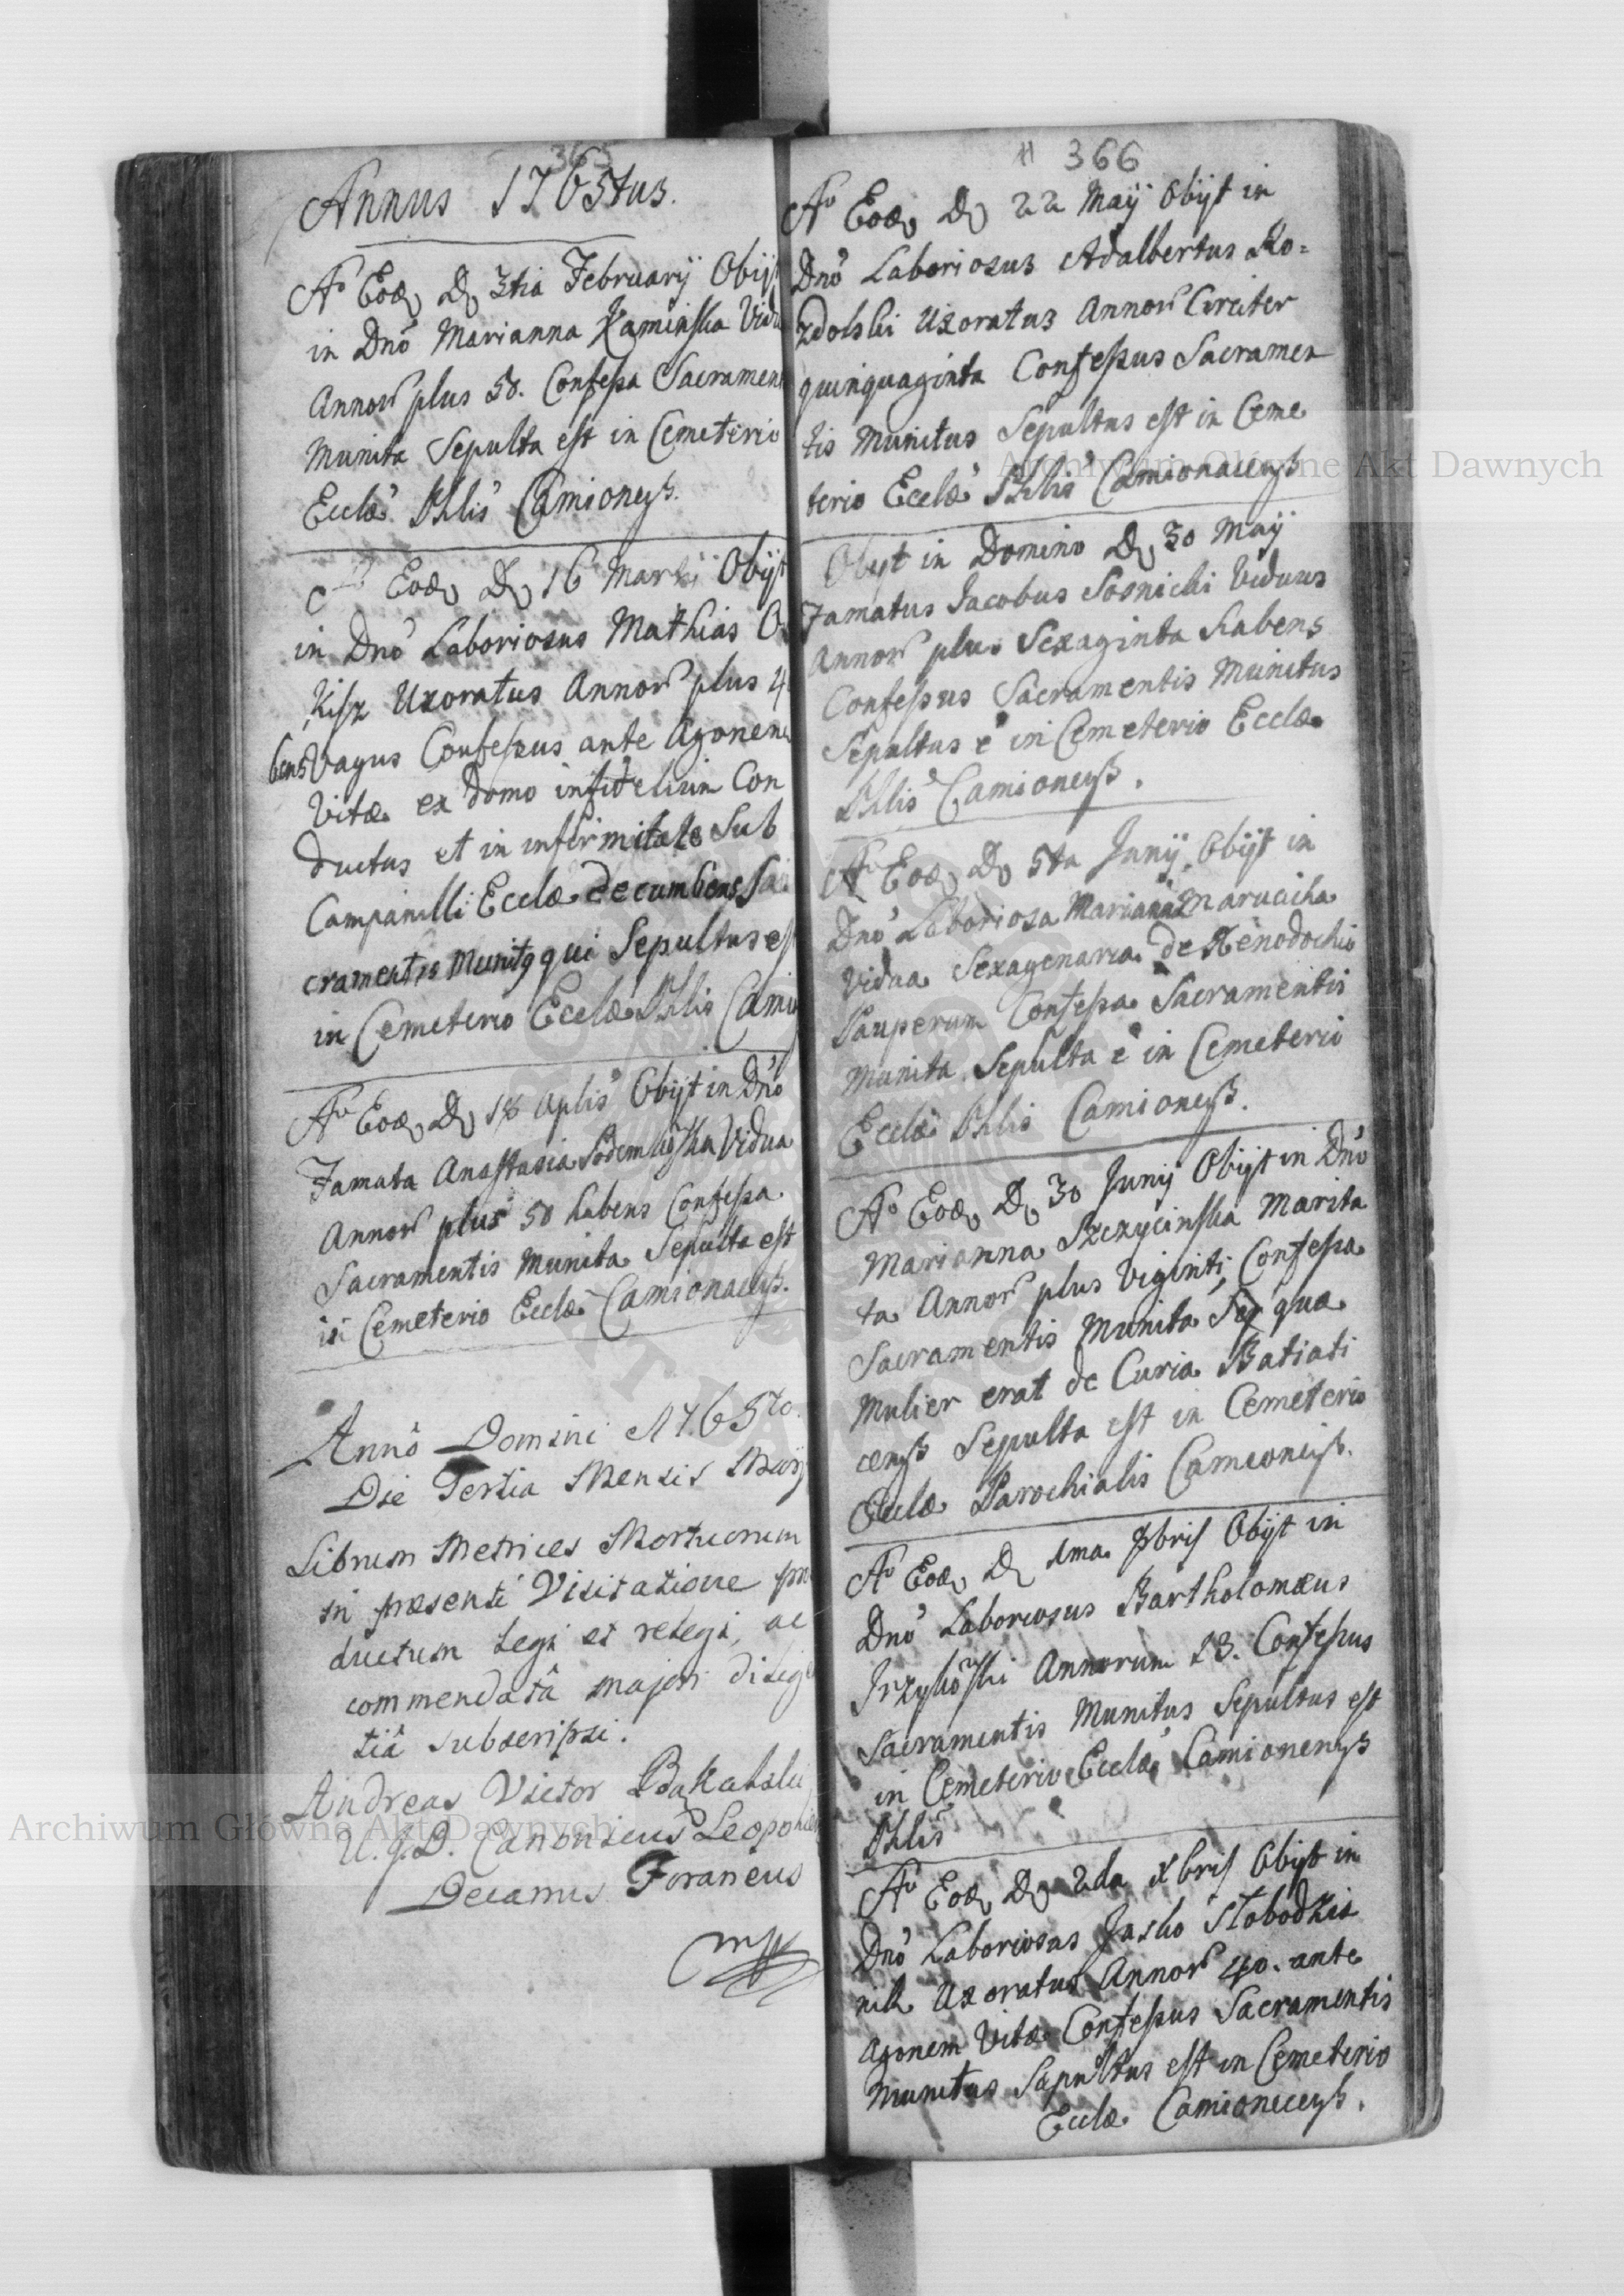 365
Annus 1765tus.
Ao Eod D 3tia Februarij Obijt
in Dno Marianna Kaminska Vidu
Annor plus 50. Confessa Sacrament
Munita Sepulta est in Cemeterio
Ecclae Phlis Camionensis.
Eod D 16 Martij Obijt
in Dno Laboriosus Mathias
Kisz Uxoratus Annor plus 4
bens Vagus Confessus ante Agonem
Vitae ex domo infidelium Con
ductus et in infirmitate Sub
Campanilli Ecclae decumbens Sa
cramentis Munitq qui Sepultus es
in Cemeterio Ecclae Phlis Camio
Ao Eod D 18 Aplis Obijt in Dno
Famata Anastasia Vidua
Annor plus 50 habens Confessa
Sacramentis Munita Sepulta est
in Cemeterio Ecclae Camionacensis.
Anno Domini 1765to.
Die Tertia Mensis Maij
Librum Metrices Mortuorum
in praesenti Visitatione pro
ductum legi et relegi, ac
commendata majori dilige
tia subscripsi.
Andreas Victor
U. J. D. Canonicus Leopolien
Decanus Foraneus
mp
11 366
Ao Eod D 22 Maij Obijt in
Dno Laboriosus Adalbertus Ro=
zdolski Uxoratus Annor Circiter
quinquaginta Confessus Sacramen
tis Munitus Sepultus est in Ceme
terio Ecclae Phlis Camionacensis
Obijt in Domino D 30 Maij
Famatus Jacobus Sosnicki Viduus
Annor plus Sexaginta habens
Confessus Sacramentis Munitus
Sepultus e in Cemeterio Ecclae
Phlis Camionensis.
Ao Eod D 5ta Junij Obijt in
Dno Laboriosa Marianna Marucicha
Vidua Sexagenaria de Xenodochio
Pauperum Confessa Sacramentis
Munita Sepulta e in Cemeterio
Ecclae Phlis Camionensis.
Ao Eod D 30 Junij Obijt in Dno
Marianna Szczycinska Marita
ta Annor plus Viginti Confessa
Sacramentis Munita quae
Mulier erat de Curia Batiati
censis Sepulta est in Cemeterio
Ecclae Parochialis Camionensis.
Ao Eod D 1ma Obijt in
Dno Laboriosus Bartholomaeus
Annorum 23. Confessus
Sacramentis Munitus Sepultus est
in Cemeterio Ecclae Camionensis
Phlis
Ao Eod D 2da Xbris Obijt in
Dno Laboriosus Jasko Slobodzia
nik Uxoratus Annor 40. ante
Agonem Vitae Confessus Sacramentis
Munitus Sepultus est in Cemeterio
Ecclae Camionecensis.
Archiwum Główne Akt Dawnych
Archiwum Główne Akt Dawnych